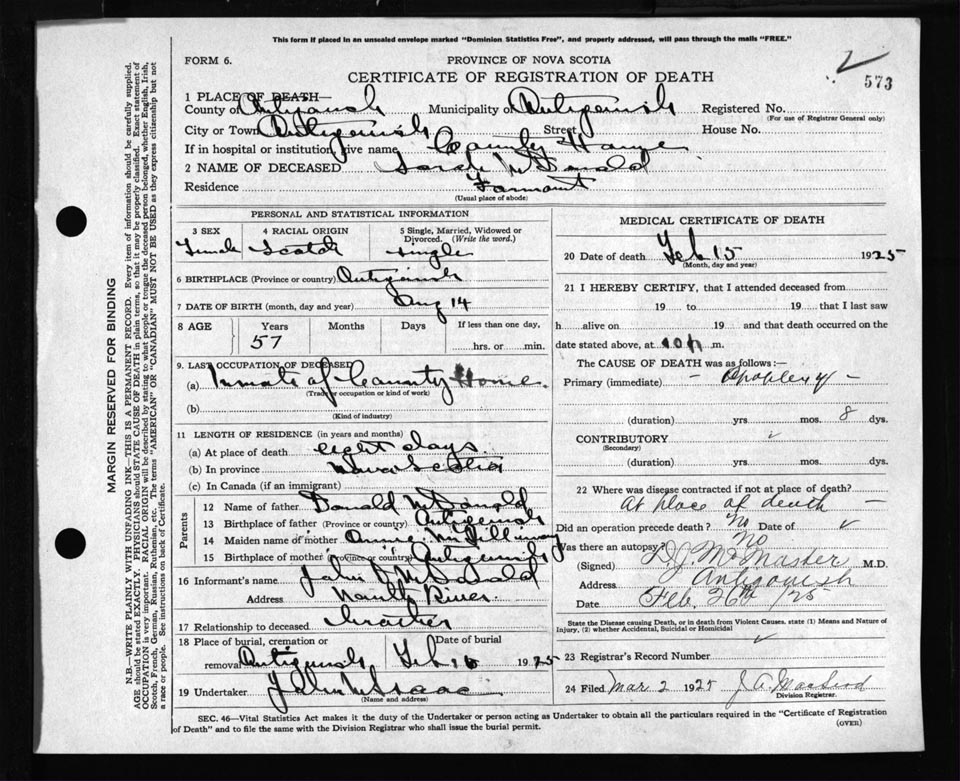 This form if placed in an unsealed envelope marked "Dominion Statistics Free", and properly addressed, will pass through the mails "FREE."
2
573
FORM 6.
PROVINCE OF NOVA SCOTIA
CERTIFICATE OF REGISTRATION OF DEATH
1 PLACE OF DEATH—
County of Antigonish Municipality of Antigonish Registered No.
(For use of Registrar General only)
City or Town Antigonish Street House No.
If in hospital or institution, give name County Home
2 NAME OF DECEASED Sarah McDonald
Residence
(Usual place of abode)
PERSONAL AND STATISTICAL INFORMATION
3 SEX
4 RACIAL ORIGIN
5 Single, Married, Widowed or Divorced. (Write the word.)
Female Scotch Single
6 BIRTHPLACE (Province or country) Antigonish
7 DATE OF BIRTH (month, day and year) Aug 14
8 AGE Years Months Days If less than one day,
57 hrs. or min.
9. LAST OCCUPATION OF DECEASED
(a) Inmate of County Home
(Trade occupation or kind of work)
(b)
(Kind of industry)
11 LENGTH OF RESIDENCE (in years and months)
(a) At place of death eight days
(b) In province Nova Scotia
(c) In Canada (if an immigrant)
Parents
12 Name of father Donald McDonald
13 Birthplace of father (Province or country) Antigonish
14 Maiden name of mother Annie McGillivray
15 Birthplace of mother (Province or country) Antigonish
16 Informant's name John McDonald
Address North River
17 Relationship to deceased brother
18 Place of burial, cremation or removal Antigonish
Date of burial Feb 16 1925
19 Undertaker John McIsaac
(Name and address)
MEDICAL CERTIFICATE OF DEATH
20 Date of death Feb 15 1925
(Month, day and year)
21 I HEREBY CERTIFY, that I attended deceased from
19 to 19 that I last saw
h alive on 19 and that death occurred on
date stated above, at m.
The CAUSE OF DEATH was as follows:—
Primary (immediate) — Apoplexy —
(duration) yrs. mos. 8 dys.
CONTRIBUTORY
(Secondary)
(duration) yrs. mos. dys.
22 Where was disease contracted if not at place of death?
At place of death —
Did an operation precede death? No Date of
Was there an autopsy? No
(Signed) D. J. McMaster M.D.
Address Antigonish
Date Feb. 26th /25
State the Disease causing Death, or in death from Violent Causes, state (1) Means and Nature of Injury, (2) whether Accidental, Suicidal or Homicidal
23 Registrar's Record Number
24 Filed Mar 2 1925 J A MacLeod
Division Registrar.
SEC. 46—Vital Statistics Act makes it the duty of the Undertaker or person acting as Undertaker to obtain all the particulars required in the "Certificate of Registration of Death" and to file the same with the Division Registrar who shall issue the burial permit.
(OVER)
MARGIN RESERVED FOR BINDING
N.B.—WRITE PLAINLY WITH UNFADING INK—THIS IS A PERMANENT RECORD. Every item of information should be carefully supplied.
AGE should be stated EXACTLY. PHYSICIANS should STATE CAUSE OF DEATH in plain terms, so that it may be properly classified. Exact statement of
OCCUPATION is very important. RACIAL ORIGIN will be described by stating to what people or tongue the deceased person belonged, whether English, Irish,
Scotch, French, German, Russian, Ruthenian, etc. The terms "AMERICAN" or "CANADIAN" MUST NOT BE USED as they express citizenship but not
a race or people. See instructions on back of Certificate.